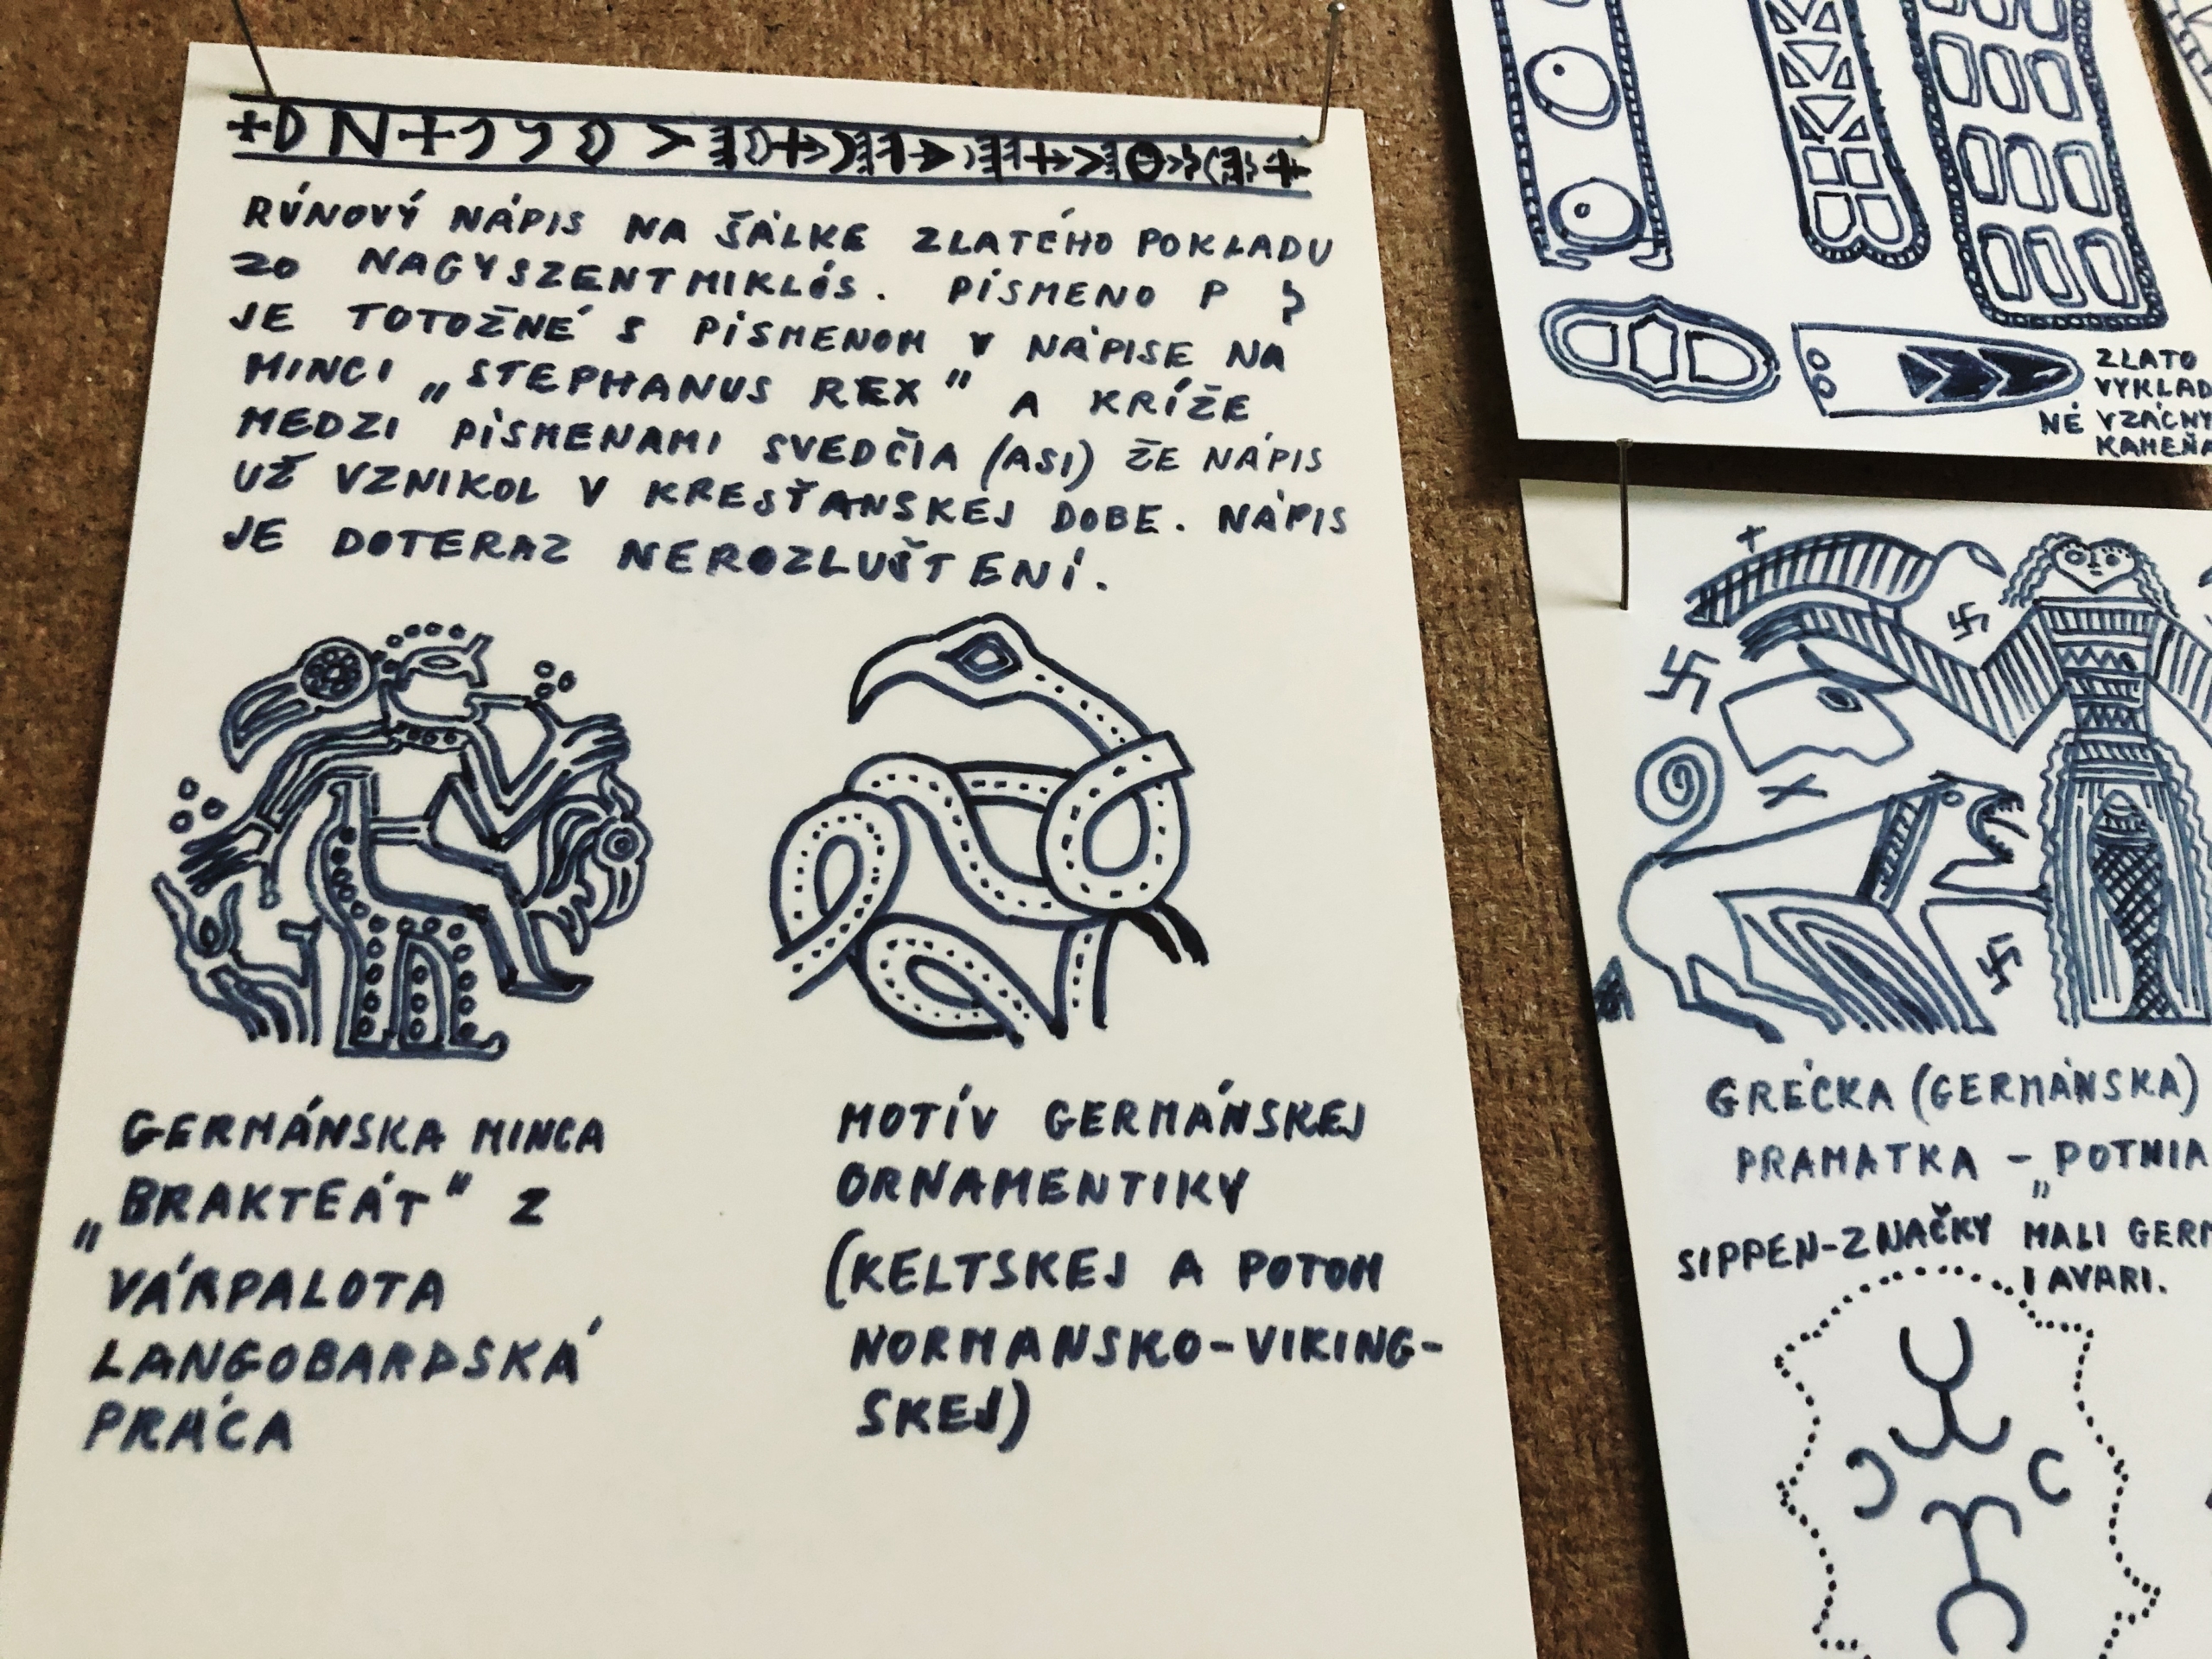 RÚNOVÝ NÁPIS NA ŠÁLKE ZLATÉHO POKLADU
ZO NAGYSZENTMIKLÓS. PÍSMENO P
JE TOTOŽNÉ S PÍSMENOM V NÁPISE NA
MINCI „STEPHANUS REX" A KRÍŽE
MEDZI PÍSMENAMI SVEDČIA (ASI) ŽE NÁPIS
UŽ VZNIKOL V KRESŤANSKEJ DOBE. NÁPIS
JE DOTERAZ NEROZLUŠTENÍ.
GERMÁNSKA MINCA
„BRAKTEÁT" Z
VÁRPALOTA
LANGOBARDSKÁ
PRÁCA
MOTÍV GERMÁNSKEJ
ORNAMENTIKY
(KELTSKEJ A POTOM
NORMANSKO-VIKING-
SKEJ)
ZLATO
VYKLAD
NÉ VZÁCNY
KAMEŇA
GRÉCKA (GERMÁNSKA)
PRAMATKA - „POTNIA
SIPPEN-ZNAČKY MALI GERM
I AVARI.